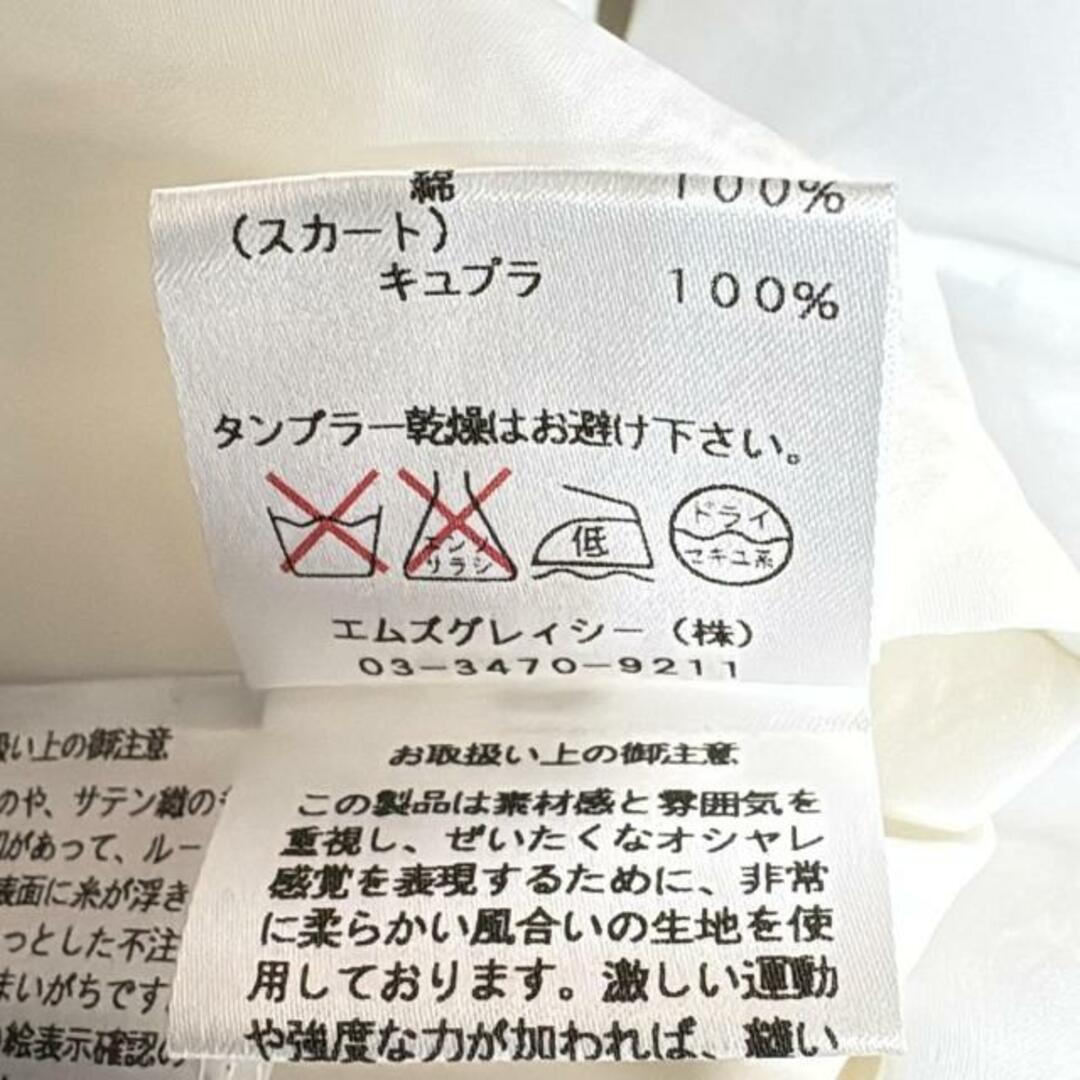 綿 100%
(スカート)
キュプラ 100%
タンブラー乾燥はお避け下さい。
エンソ
サラシ
低
ドライ
セキユ系
エムズグレィシー(株)
03-3470-9211
お取扱い上の御注意
この製品は素材感と雰囲気を
重視し、ぜいたくなオシャレ
感覚を表現するために、非常
に柔らかい風合いの生地を使
用しております。激しい運動
や強度な力が加われば、縫い
扱い上の御注意
のや、サテン織の
があって、ルー
表面に糸が浮き
っとした不注
まいがちです
絵表示確認